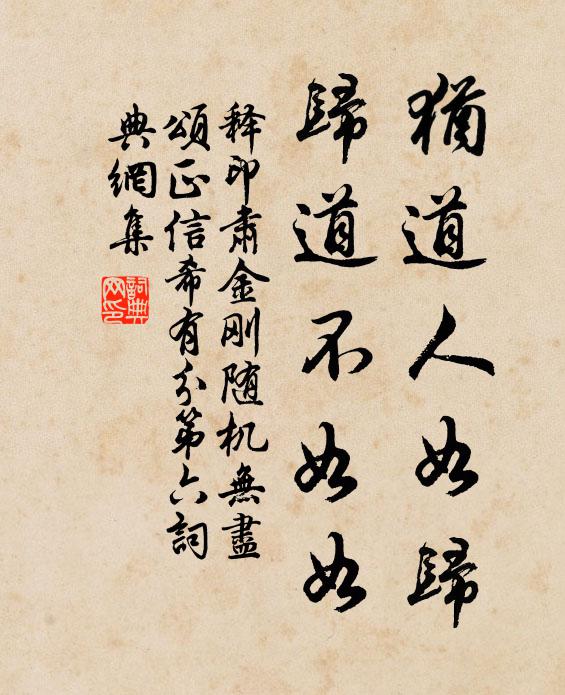 猶道人如歸
歸道不如如
釋印肅金刚随机無盡
頌正信希有分第六詞
典網集
詞典網印